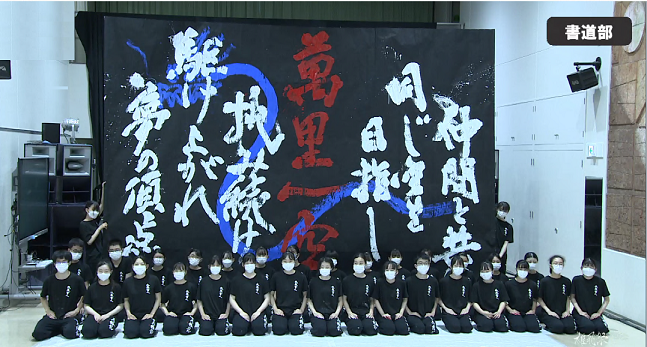 書道部
仲間と共
同じ空を
目指し
萬里一空
挑み続け
駆け上がれ
夢の頂点